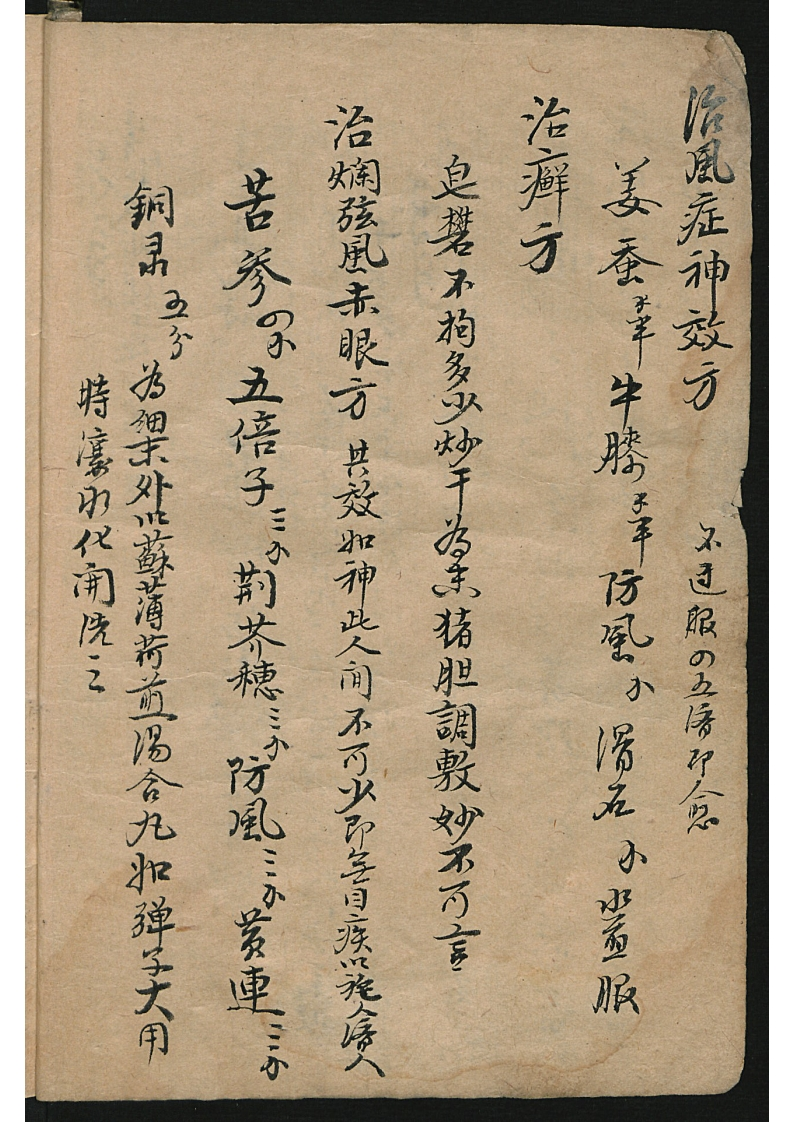 治風症神效方 不过服四五济即愈
姜蚕 牛膝 防風 滑石 水煎服
治癬方
皂礬不拘多少炒干為末猪胆調敷妙不可言
治爛弦風赤眼方 其效如神此人间不可少即無目疾以施人濟人
苦參四 五倍子三 荆芥穗三 防風三 黄連三
銅录五分 為細末外以蘇薄荷煎湯合丸如弹子大用
時滾水化開洗之